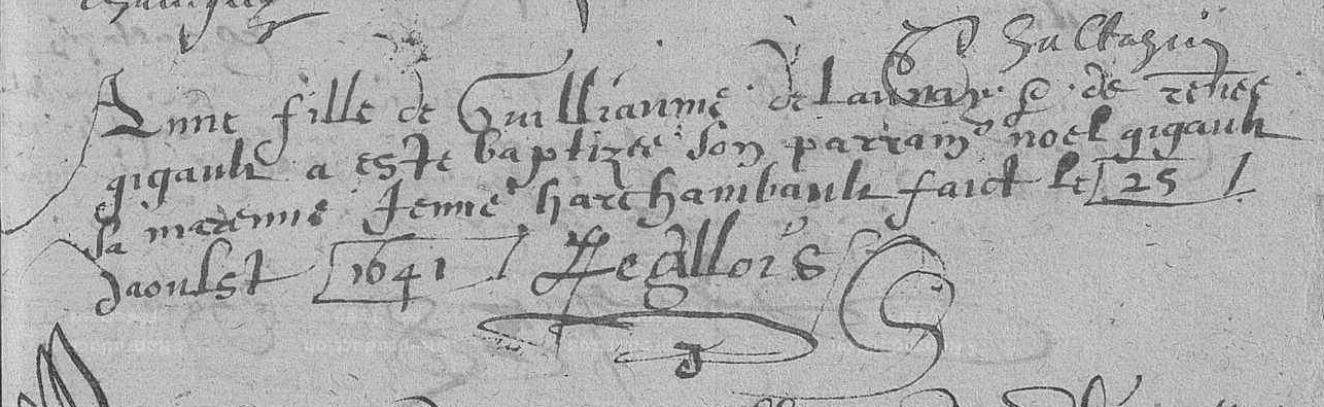 Anne fille de Guilliaume delaunay & de renee
gigault a este baptizee son parrain noel gigault
sa marenne Jenne harchambault faict le 25
daoulst 1641 Legallois